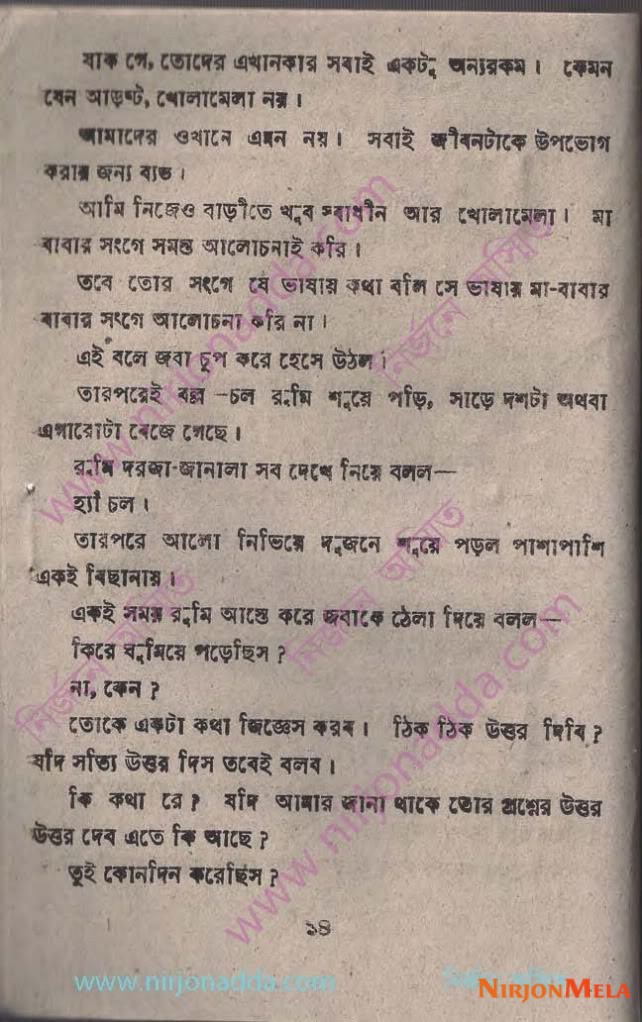 যাক গে, তোদের এখানকার সবাই একটু অন্যরকম। কেমন
যেন আড়ষ্ট, খোলামেলা নয়।
আমাদের ওখানে এমন নয়। সবাই জীবনটাকে উপভোগ
করার জন্য ব্যস্ত।
আমি নিজেও বাড়ীতে খুব স্বাধীন আর খোলামেলা। মা
বাবার সংগে সমস্ত আলোচনাই করি।
তবে তোর সংগে যে ভাষায় কথা বলি সে ভাষায় মা-বাবার
বাবার সংগে আলোচনা করি না।
এই বলে জবা চুপ করে হেসে উঠল।
তারপরেই বল্ল -চল রুমি শুয়ে পড়ি, সাড়ে দশটা অথবা
এগারোটা বেজে গেছে।
রুমি দরজা-জানালা সব দেখে নিয়ে বলল—
হ্যাঁ চল।
তারপরে আলো নিভিয়ে দুজনে শুয়ে পড়ল পাশাপাশি
একই বিছানায়।
একই সময় রুমি আস্তে করে জবাকে ঠেলা দিয়ে বলল—
কিরে ঘুমিয়ে পড়েছিস?
না, কেন?
তোকে একটা কথা জিজ্ঞেস করব। ঠিক ঠিক উত্তর দিবি?
যদি সত্যি উত্তর দিস তবেই বলব।
কি কথা রে? যদি আমার জানা থাকে তোর প্রশ্নের উত্তর
উত্তর দেব এতে কি আছে?
তুই কোনদিন করেছিস?
১৪
www.nirjonadda.com
নির্জনে অস্মিত
www.nirjonadda.com
NIRJONMELA